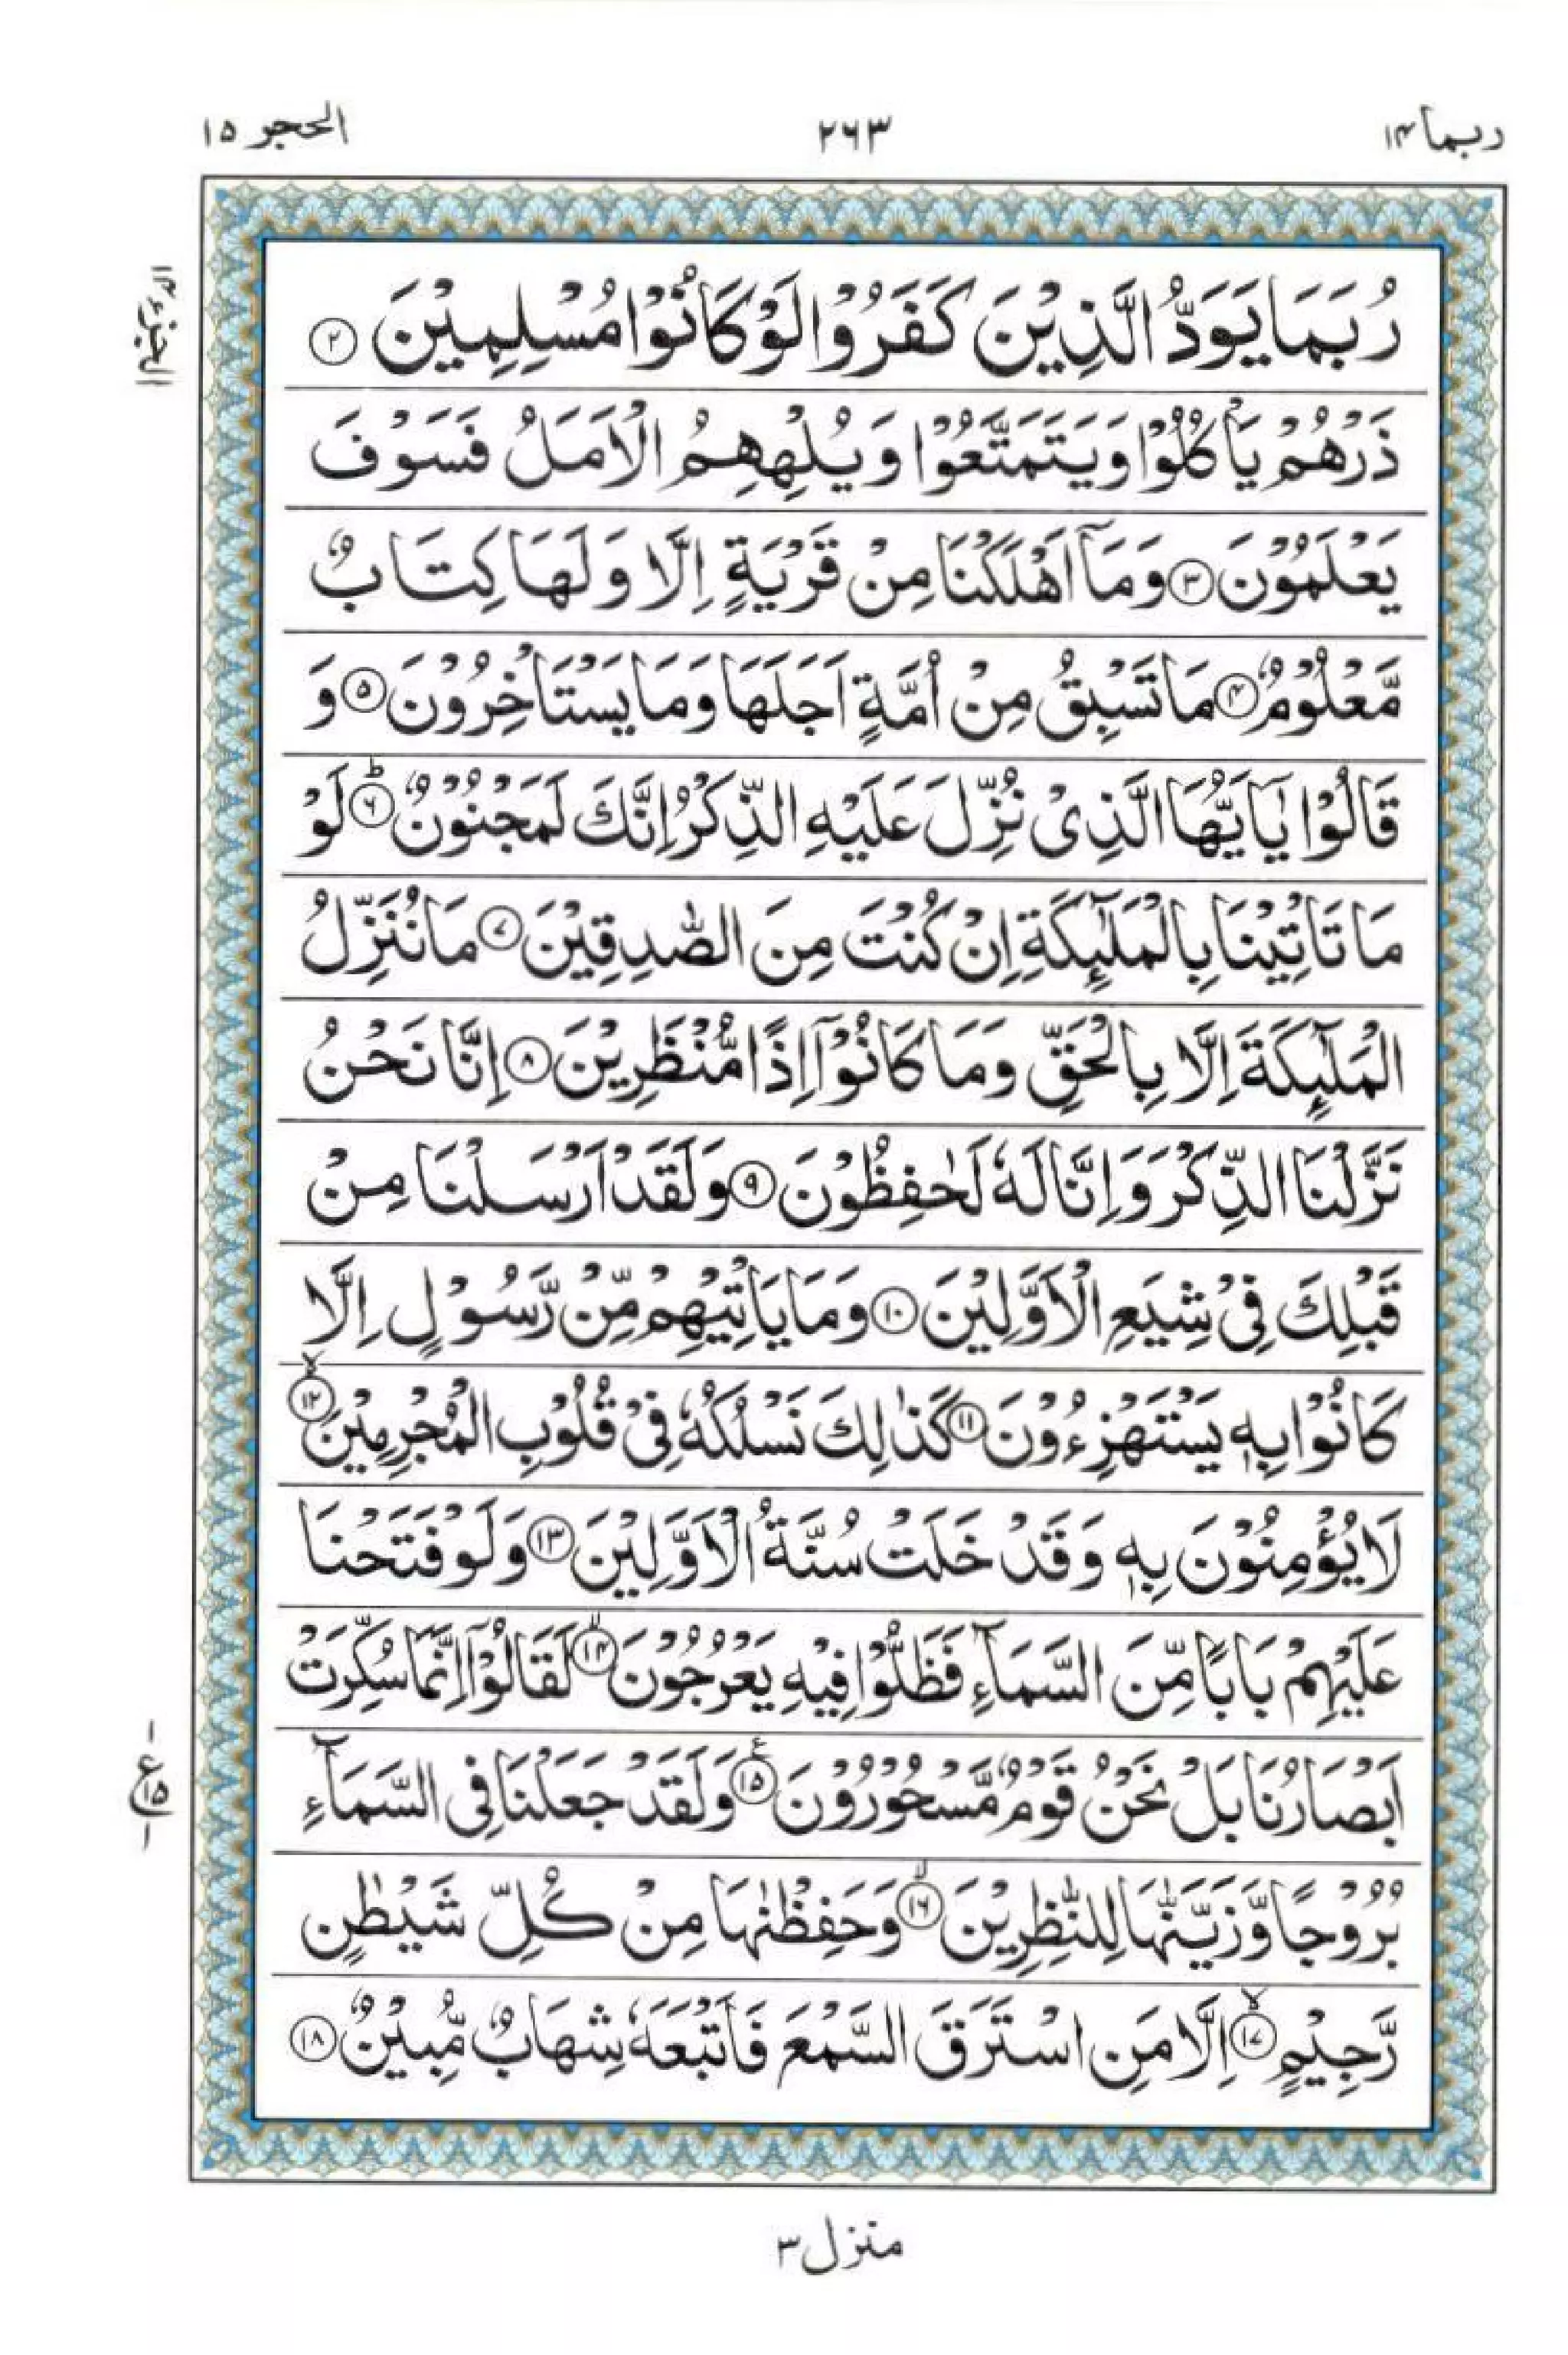 ربما ١٤
٢٦٣
الحجر ١٥
الجزء ١٤
رُبَمَا يَوَدُّ الَّذِيْنَ كَفَرُوْا لَوْ كَانُوْا مُسْلِمِيْنَ ٢
ذَرْهُمْ يَاْكُلُوْا وَيَتَمَتَّعُوْا وَيُلْهِهِمُ الْاَمَلُ فَسَوْفَ
يَعْلَمُوْنَ ٣ وَمَاۤ اَهْلَكْنَا مِنْ قَرْيَةٍ اِلَّا وَلَهَا كِتَابٌ
مَّعْلُوْمٌ ٤ مَا تَسْبِقُ مِنْ اُمَّةٍ اَجَلَهَا وَمَا يَسْتَاْخِرُوْنَ ٥ وَ
قَالُوْا يٰۤاَيُّهَا الَّذِىْ نُزِّلَ عَلَيْهِ الذِّكْرُ اِنَّكَ لَمَجْنُوْنٌ ؕ ٦ لَوْ
مَا تَاْتِيْنَا بِالْمَلٰٓئِكَةِ اِنْ كُنْتَ مِنَ الصّٰدِقِيْنَ ٧ مَا نُنَزِّلُ
الْمَلٰٓئِكَةَ اِلَّا بِالْحَقِّ وَمَا كَانُوْۤا اِذًا مُّنْظَرِيْنَ ٨ اِنَّا نَحْنُ
نَزَّلْنَا الذِّكْرَ وَاِنَّا لَهٗ لَحٰفِظُوْنَ ٩ وَلَقَدْ اَرْسَلْنَا مِنْ
قَبْلِكَ فِىْ شِيَعِ الْاَوَّلِيْنَ ١٠ وَمَا يَاْتِيْهِمْ مِّنْ رَّسُوْلٍ اِلَّا
كَانُوْا بِهٖ يَسْتَهْزِءُوْنَ ١١ كَذٰلِكَ نَسْلُكُهٗ فِىْ قُلُوْبِ الْمُجْرِمِيْنَ ۙ ١٢
لَا يُؤْمِنُوْنَ بِهٖ وَقَدْ خَلَتْ سُنَّةُ الْاَوَّلِيْنَ ١٣ وَلَوْ فَتَحْنَا
عَلَيْهِمْ بَابًا مِّنَ السَّمَآءِ فَظَلُّوْا فِيْهِ يَعْرُجُوْنَ ۙ ١٤ لَقَالُوْۤا اِنَّمَا سُكِّرَتْ
اَبْصَارُنَا بَلْ نَحْنُ قَوْمٌ مَّسْحُوْرُوْنَ ١٥ وَلَقَدْ جَعَلْنَا فِى السَّمَآءِ
بُرُوْجًا وَّزَيَّنّٰهَا لِلنّٰظِرِيْنَ ۙ ١٦ وَحَفِظْنٰهَا مِنْ كُلِّ شَيْطٰنٍ
رَّجِيْمٍ ۙ ١٧ اِلَّا مَنِ اسْتَرَقَ السَّمْعَ فَاَتْبَعَهٗ شِهَابٌ مُّبِيْنٌ ١٨
منزل ٣